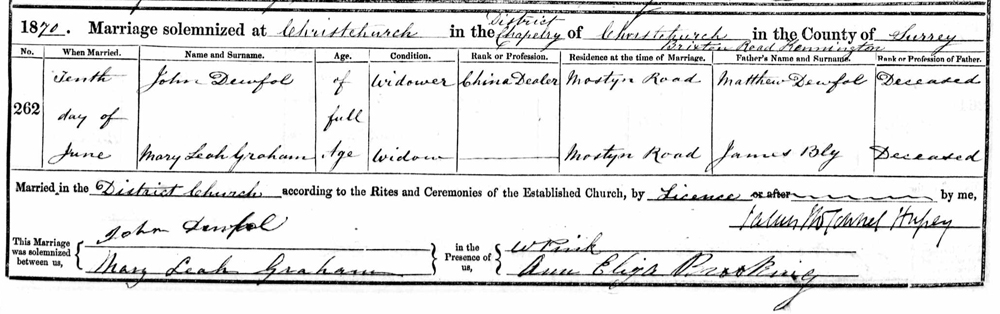 1870. Marriage solemnized at Christchurch in the District Chapelry of Christchurch in the County of Surrey
Brixton Road Kennington
No. When Married. Name and Surname. Age. Condition. Rank or Profession. Residence at the time of Marriage. Father's Name and Surname. Rank or Profession of Father.
262 Tenth day of June John Dewfol of full Age Widower China Dealer Mostyn Road Matthew Dewfol Deceased
Mary Leah Graham Widow Mostyn Road James Bly Deceased
Married in the District Church according to the Rites and Ceremonies of the Established Church, by Licence or after by me,
This Marriage was solemnized between us, John Dewfol Mary Leah Graham in the Presence of us, W Pink Ann Eliza Brooking